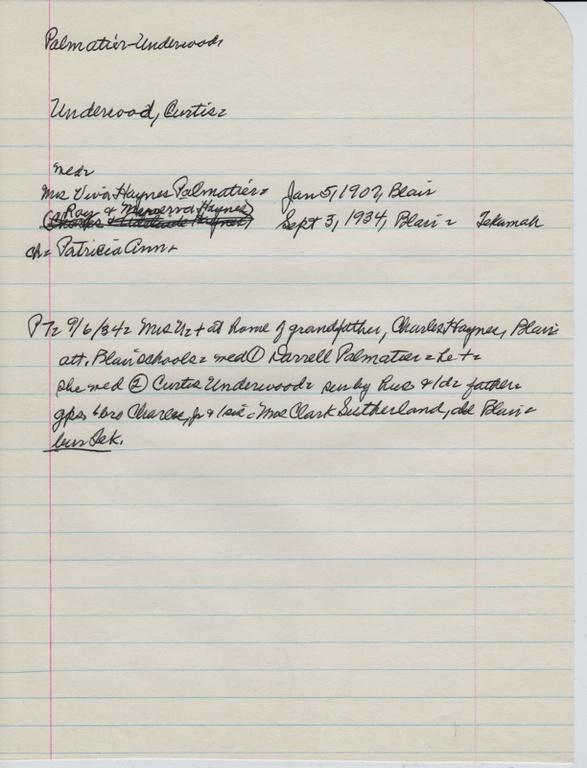 Palmatier-Underwood
Underwood, Curtis=
med=
Mrs Viva Haynes Palmatier= Jan 5, 1907, Blair
(Ray & Minerva Haynes)
(Charles & Haynes) Sept 3, 1934, Blair= Tekamah
ch= Patricia Ann+
PT= 9/6/34= Mrs U=+ at home of grandfather, Charles Haynes, Blair
att. Blair schools= med ① Darrell Palmatier= he +=
She med ② Curtis Underwood= sur by hus & 1d= father=
gps & bro Charles, Jr & 1 sis= Mrs Clark Sutherland, all Blair=
bur Tek.